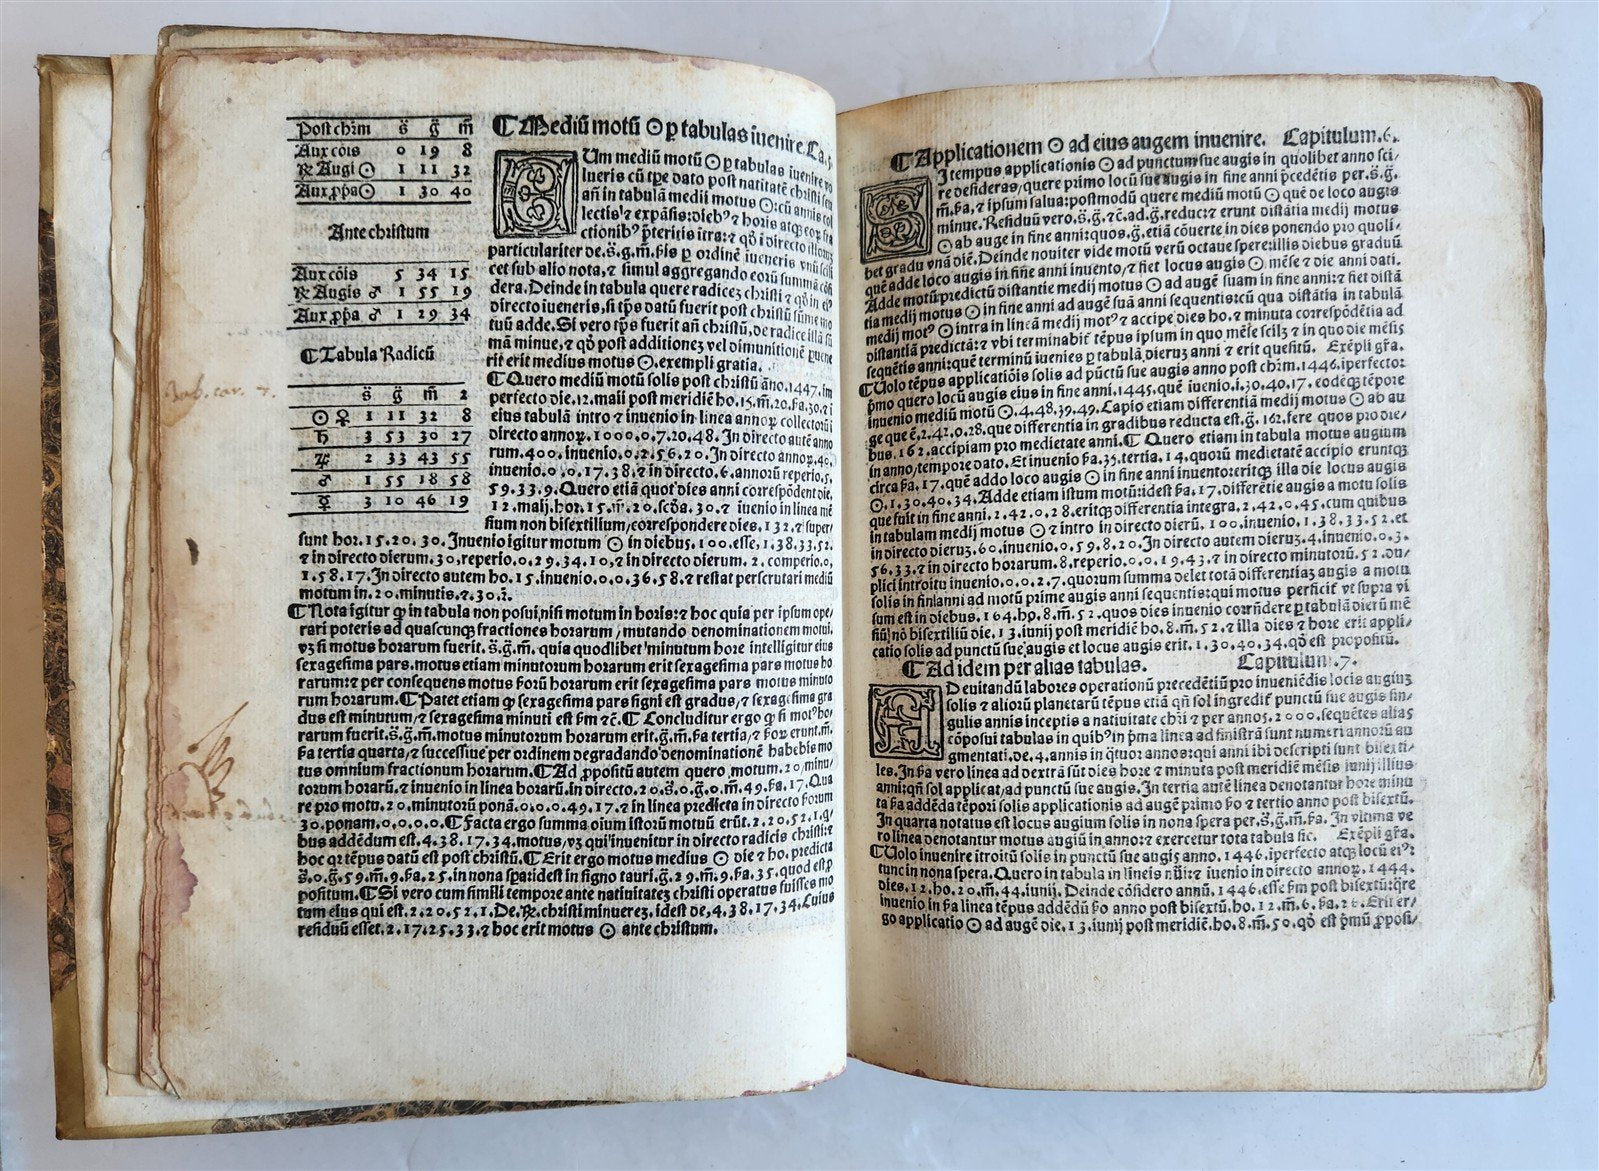 Post chr̄m s̈ g̈ m̄
Aux cōis 0 19 8
Augi ☉ 1 11 32
Aux ꝓp̄a ☉ 1 30 40
Ante christum
Aux cōis 5 34 15
Augis ♂ 1 55 19
Aux ꝓp̄a ♂ 1 29 34
¶ Tabula Radicū
s̈ g̈ m̄ 2
☉ ♀ 1 11 32 8
♄ 3 53 30 27
♃ 2 33 43 55
♂ 1 55 18 58
☿ 3 10 46 19
¶ Mediū motū ☉ ꝑ tabulas īuenire. Ca.
Um mediū motū ☉ ꝑ tabulas iuenire
lueris cū tꝑe dato post natitatē christi
an̄ in tabulā medii motus ☉: cū annis
lectis ⁊ expāsis: dieb⁹ ⁊ horis atqꝫ
ctionib⁹ p̄teritis itra: ⁊ qd̄ i directo
particulariter de. s̈. g̈. m̄. p̄is ꝑ ordinē iueneris
cet sub alio nota, ⁊ simul aggregando eorū summā
dera. Deinde in tabula quere radicez christi ⁊ qd̄ in
directo iueneris, si tp̄s datū fuerit post christū sūme
tuū adde. Si vero tp̄s fuerit an̄ christū, de radice illā
mā minue, ⁊ qd̄ post additionez vel diminutionē
rit erit medius motus ☉. exempli gratia.
¶ Quero mediū motū solis post christū āno. 1447. im
perfecto die. 12. maii post meridiē ho. 15. m̄. 20. s̄a. 30. ⁊ i
eius tabulā intro ⁊ inuenio in linea annoꝝ collectorū i
directo annoꝝ. 1000. 0. 7. 20. 48. In directo autē anno
rum. 400. inuenio. 0. 2. 56. 20. In directo annoꝝ. 40.
inuenio. 0. 0. 17. 38. ⁊ in directo. 6. annorū reperio. 5.
59. 33. 9. Quero etiā quot dies anni correspōdent die.
12. maij. hor. 15. m̄. 20. scd̄a. 30. ⁊ iuenio in linea mē
sium non bisextilium, correspondere dies. 132. ⁊ super/
sunt hor. 15. 20. 30. Inuenio igitur motum ☉ in diebus. 100. esse, 1. 38. 33. 52.
⁊ in directo dierum. 30, reperio. 0. 29. 34. 10, ⁊ in directo dierum. 2. comperio. 0.
1. 58. 17. In directo autem ho. 15. inuenio. 0. 0. 36. 58. ⁊ restat perscrutari mediū
motum in. 20. minutis. ⁊. 30. 2̄.
¶ Nota igitur ꝙ in tabula non posui, nisi motum in horis: ⁊ hoc quia per ipsum ope/
rari poteris ad quascunqꝫ fractiones horarum, mutando denominationem motui.
vꝫ si motus horarum fuerit. s̈. g̈. m̄. quia quodlibet minutum hore intelligitur eius
sexagesima pars. motus etiam minutorum horarum erit sexagesima pars motus ho
rarum: ⁊ per consequens motus s̄orū horarum erit sexagesima pars motus minuto
rum horarum. ¶ Patet etiam ꝙ sexagesima pars signi est gradus, ⁊ sexagesima gra
dus est minutum, ⁊ sexagesima minuti est s̄m ⁊c̄. ¶ Concluditur ergo ꝙ si mot⁹ ho/
rarum fuerit. s̈. g̈. m̄. motus minutorum horarum erit. g̈. m̄. s̄a tertia, ⁊ s̄oꝝ erunt. m̄.
s̄a tertia quarta, ⁊ successiue per ordinem degradando denominationē habebis mo
tus omnium fractionum horarum. ¶ Ad ꝓpositū autem quero motum. 20. minu/
torum horarū. ⁊ inuenio in linea horarū. in directo. 20. s̈. 0. g̈. 0. m̄. 49. s̄a. 17. Qua
re pro motu. 20. minutorū ponā. 0. 0. 0. 49. 17. ⁊ in linea predicta in directo s̄orum
30. ponam. 0. 0. 0. 0. ¶ Facta ergo summa oīum istorū motuū erūt. 2. 20. 52. 1. q̄/
bus addēdum est. 4. 38. 17. 34. motus, vꝫ qui inuenitur in directo radicis christi: ⁊
hoc qꝛ tēpus datū est post christū. ¶ Erit ergo motus medius ☉ die ⁊ ho. predicta
s̈. 0. g̈. 59. m̄. 9. s̄a. 25. in nona spa: idest in signo tauri. g̈. 29. m̄. 9. s̄a. 35. quod est ꝓ
positum. ¶ Si vero cum simili tempore ante natiuitatez christi operatus fuisses mo
tum eius qui est. 2. 20. 52. 1. De. christi minuerez. idest de, 4. 38. 17. 34. Cuius
residuū esset. 2. 17. 25. 33. ⁊ hoc erit motus ☉ ante christum.
¶ Applicationem ☉ ad eius augem inuenire. Capitulum. 6.
I tempus applicationis ☉ ad punctum sue augis in quolibet anno sci/
re desideras, quere primo locū sue augis in fine anni p̄cedētis per. s̈. g̈.
m̄. s̄a, ⁊ ipsum salua: postmodū quere mediū motū ☉ quē de loco augis
minue. Residuū vero. s̈. g̈. ⁊c̄. ad. g̈. reduc: ⁊ erunt distātia medij motus
☉ ab auge in fine anni: quos. g̈. etiā cōuerte in dies ponendo pro quoli/
bet gradu vnā diē. Deinde nouiter vide motū verū octaue spere: illis diebus graduū
quē adde loco augis in fine anni inuento, ⁊ fiet locus augis ☉ mēse ⁊ die anni dati.
Adde motū predictū distantie medij motus ☉ ad augē suam in fine anni: ⁊ fiet distā
tia medij motus ☉ in fine anni ad augē suā anni sequentis: cū qua distātia in tabulā
medij mot⁹ ☉ intra in lineā medij mot⁹ ⁊ accipe dies ho. ⁊ minuta correspōdētia ad
distantiā predictā: ⁊ vbi terminabit̄ tēpus ipsum in quo mēse scilꝫ ⁊ in quo die mēsis
sequētis anni: quē terminū iuenies ꝑ tabulā dieruꝫ anni ⁊ erit quesitū. Exēpli gr̄a.
¶ Uolo tēpus applicatiōis solis ad pūctū sue augis anno post chr̄m. 1446. iperfecto:
p̄mo quero locū augis eius in fine anni. 1445. quē iuenio. i. 30. 40. 17. eodeqꝫ tēpore
inuenio mediū motū ☉. 4. 48. 39. 49. Capio etiam differentiā medij motus ☉ ab au
ge que ē. 2. 42. 0. 28. que differentia in gradibus reducta est. g̈. 162. fere quos pro die/
bus. 162. accipiam pro medietate anni. ¶ Quero etiam in tabula motus augium
in anno, tempore dato. Et inuenio s̄a. 35. tertia. 14. quorū medietatē accipio eruntqꝫ
circa s̄a. 17. quē addo loco augis ☉ in fine anni inuento: eritqꝫ illa die locus augis
☉. 1. 30. 40. 34. Adde etiam istum motū: idest s̄a. 17. differētie augis a motu solis
que fuit in fine anni. 2. 42. 0. 28. eritqꝫ differentia integra. 2. 42. 0. 45. cum quibus
in tabulam medij motus ☉ ⁊ intro in directo dierū. 100. inuenio. 1. 38. 33. 52. et
in directo dieruꝫ. 60. inuenio. 0. 59. 8. 20. In directo autem dieruꝫ. 4. inuenio. 0. 3.
56. 33. ⁊ in directo horarum. 8. reperio. 0. 0. 19. 43. ⁊ in directo minutorū. 52. du/
plici introitu inuenio. 0. 0. 2. 7. quorum summa delet totā differentiaꝫ augis a motu
solis in fini anni ad motū prime augis anni sequentis: qui motus perficit̄ vt supra vi
sum est in diebus. 164. hp. 8. m̄. 52. quos dies inuenio corrn̄dere ꝑ tabulā dierū mē
siū nō bisextiliū die. 13. iunij post meridiē ho. 8. m̄. 52. ⁊ illa dies ⁊ hore erit appli/
catio solis ad punctū sue augis et locus augis erit. 1. 30. 40. 34. qd̄ est propositū.
¶ Ad idem per alias tabulas. Capitulum. 7.
D euitandū labores operationū precedētiū pro inueniēdis locis augiuꝫ
solis ⁊ aliorū planetarū tēpus etiā qn̄ sol ingredit̄ punctū sue augis sin/
gulis annis inceptis a natiuitate chr̄i ⁊ per annos. 2000. sequētes alias
cōposui tabulas in quib⁹ in p̄ma linea ad sinistrā sunt numeri annorū au
gmentati. de. 4. annis in q̄tuor annos: qui anni ibi descripti sunt bisexti/
les. In s̄a vero linea ad dextrā sūt dies hore ⁊ minuta post meridiē mēsis iunij illius
anni: qn̄ sol applicat̄ ad punctū sue augis. In tertia autē linea denotantur hore minu
ta s̄a addēda tēpori solis applicationis ad augē primo s̄o ⁊ tertio anno post bisextū.
In quarta notatus est locus augium solis in nona spera per. s̈. g̈. m̄. s̄a. In vltima ve
ro linea denotantur motus augiū in annor. ⁊ exercetur tota tabula sic. Exēpli gr̄a.
¶ Uolo inuenire itroitū solis in punctū sue augis anno. 1446. iperfecto atqꝫ locū ei⁹:
tunc in nona spera. Quero in tabula in lineis ⁊ iuenio in directo annoꝝ. 1444.
dies. 12. ho. 20. m̄. 44. iunij. Deinde cōsidero annū. 1446. esse s̄m post bisextū: qr̄e
inuenio in s̄a linea tēpus addēdū s̄o anno post bisextū. ho. 12. m̄. 6. s̄a. 26. Erit er/
go applicatio ☉ ad augē die. 13. iunij post meridiē. ho. 8. m̄. 50. qd̄ est p̄mū ꝓposi/